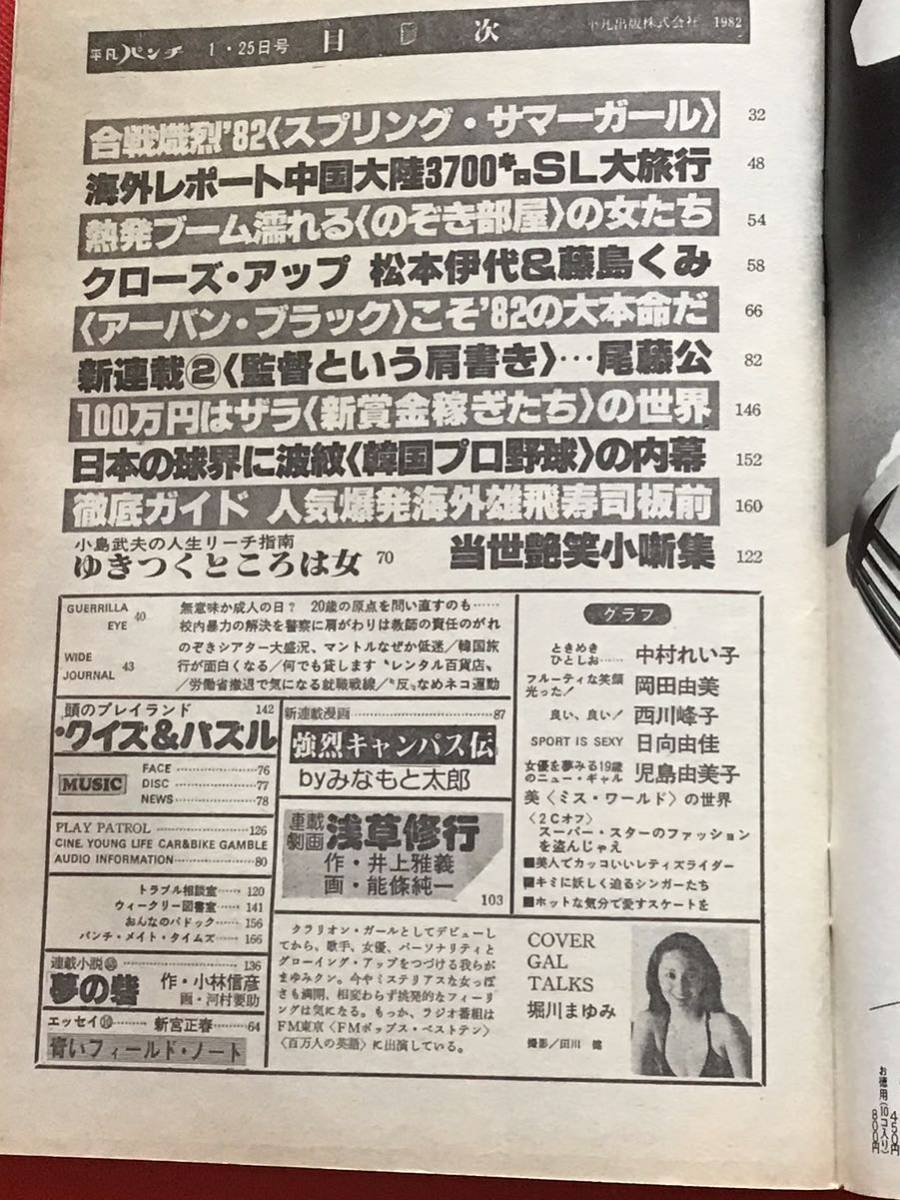 平凡パンチ 1・25日号 目次 平凡出版株式会社 1982
合戦熾烈'82〈スプリング・サマーガール〉 32
海外レポート中国大陸3700キロSL大旅行 48
熱発ブーム濡れる〈のぞき部屋〉の女たち 54
クローズ・アップ 松本伊代&藤島くみ 58
〈アーバン・ブラック〉こそ'82の大本命だ 66
新連載②〈監督という肩書き〉…尾藤公 82
100万円はザラ〈新賞金稼ぎたち〉の世界 146
日本の球界に波紋〈韓国プロ野球〉の内幕 152
徹底ガイド 人気爆発海外雄飛寿司板前 160
小島武夫の人生リーチ指南
ゆきつくところは女 70
当世艶笑小噺集 122
GUERRILLA
EYE 40
無意味か成人の日? 20歳の原点を問い直すのも……
校内暴力の解決を警察に肩がわりは教師の責任のがれ
WIDE
JOURNAL 43
のぞきシアター大盛況、マントルなぜか低迷/韓国旅
行が面白くなる/何でも貸します〝レンタル百貨店〟
/労働省撤退で気になる就職戦線/〝反〟なめネコ運動
頭のプレイランド 142
・クイズ&パズル
MUSIC
FACE 76
DISC 77
NEWS 78
PLAY PATROL 126
CINE. YOUNG LIFE CAR&BIKE GAMBLE
AUDIO INFORMATION 80
トラブル相談室…… 120
ウィークリー図書室…… 141
おんなのパドック…… 156
パンチ・メイト・タイムズ…… 166
連載小説 136
夢の砦 作・小林信彦
画・河村要助
エッセイ⑩ 新宮正春 64
青いフィールド・ノート
新連載漫画 87
強烈キャンパス伝
byみなもと太郎
連載劇画 浅草修行
作・井上雅義
画・能條純一
103
グラフ
ときめき
ひとしお…… 中村れい子
フルーティな笑顔
光った! 岡田由美
良い、良い! 西川峰子
SPORT IS SEXY 日向由佳
女優を夢みる19歳
のニュー・ギャル 児島由美子
美〈ミス・ワールド〉の世界
〈2Cオフ〉
スーパー・スターのファッション
を盗んじゃえ
■美人でカッコいいレディズライダー
■キミに妖しく迫るシンガーたち
■ホットな気分で愛すスケートを
クラリオン・ガールとしてデビューし
てから、歌手、女優、パーソナリティと
グローイング・アップをつづける我らが
まゆみクン。今やミステリアスな女っぽ
さも満開、相変わらず挑発的なフィーリ
ングは気になる。もっか、ラジオ番組は
FM東京〈FMポップス・ベストテン〉
〈百万人の英語〉に出演している。
COVER
GAL
TALKS
堀川まゆみ
撮影/田川 健
お徳用(10コ入り)
450円
800円